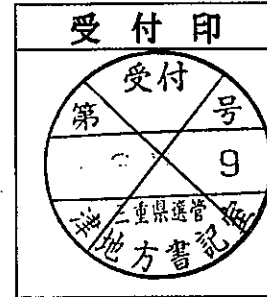 受付印
受付
第 号
9
三重県選管
津地方書記室